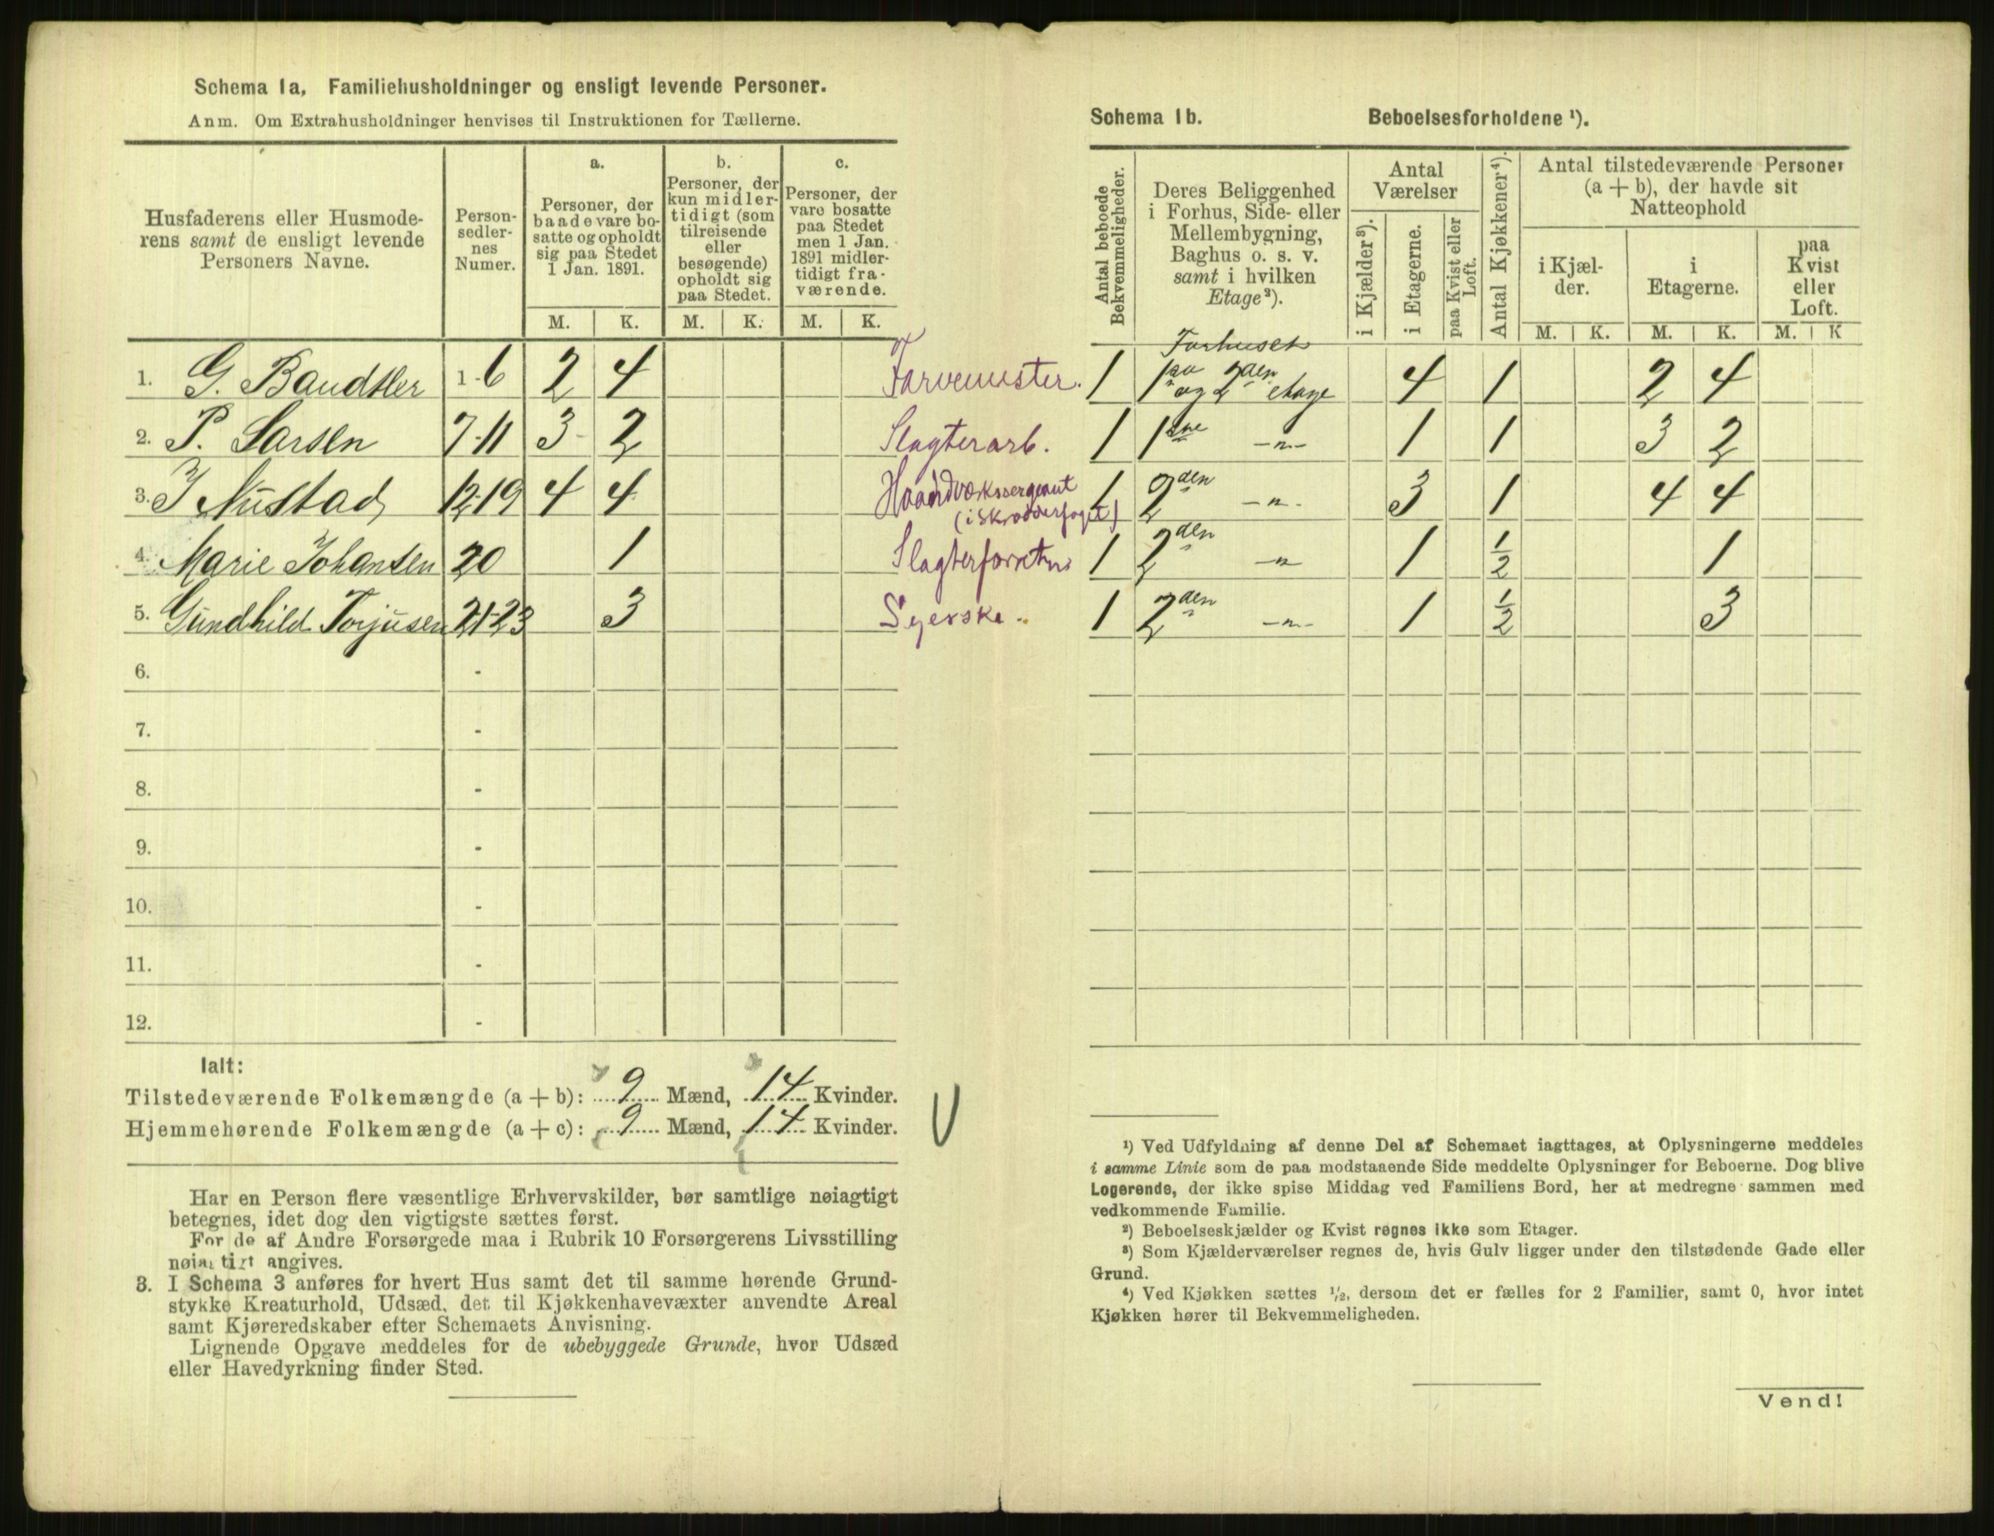 Schema 1a, Familiehusholdninger og ensligt levende Personer.
Anm. Om Extrahusholdninger henvises til Instruktionen for Tællerne.
Husfaderens eller Husmode-
rens samt de ensligt levende
Personers Navne.
Person-
sedler-
nes
Numer.
a.
Personer, der
baade vare bo-
satte og opholdt
sig paa Stedet
1 Jan. 1891.
b.
Personer, der
kun midler-
tidigt (som
tilreisende
eller
besøgende)
opholdt sig
paa Stedet.
c.
Personer, der
vare bosatte
paa Stedet
men 1 Jan.
1891 midler-
tidigt fra-
værende.
M. K. M. K. M. K.
1. G. Bandtler 1-6 2 4 Farvemester.
2. P. Larsen 7-11 3 2 Slagterarb.
3. J Nustad 12-19 4 4 Haandværkssergeant
(i Skrædderfaget)
4. Marie Johansen 20 1
5. Gundhild Torjusen 21-23 3 Syerske.
6. -
7. -
8. -
9. -
10. -
11. -
12. -
Ialt:
Tilstedeværende Folkemængde (a + b): 9 Mænd, 14 Kvinder.
Hjemmehørende Folkemængde (a + c): 9 Mænd, 14 Kvinder.
Har en Person flere væsentlige Erhvervskilder, bør samtlige nøiagtigt
betegnes, idet dog den vigtigste sættes først.
For de af Andre Forsørgede maa i Rubrik 10 Forsørgerens Livsstilling
nøiagtigt angives.
3. I Schema 3 anføres for hvert Hus samt det til samme hørende Grund-
stykke Kreaturhold, Udsæd, det til Kjøkkenhavevæxter anvendte Areal
samt Kjøreredskaber efter Schemaets Anvisning.
Lignende Opgave meddeles for de ubebyggede Grunde, hvor Udsæd
eller Havedyrkning finder Sted.
Schema 1b. Beboelsesforholdene ¹).
Antal beboede
Bekvemmeligheder.
Deres Beliggenhed
i Forhus, Side- eller
Mellembygning,
Baghus o. s. v.
samt i hvilken
Etage²).
Antal
Værelser
i Kjælder³).
i Etagerne.
paa Kvist eller
Loft.
Antal Kjøkkener⁴).
Antal tilstedeværende Personer
(a + b), der havde sit
Natteophold
i Kjæl-
der.
i
Etagerne.
paa
Kvist
eller
Loft.
M. K. M. K. M. K
Forhuset
1 og 2den etage 1 4 1 2 4
1 1ste -"- 1 1 3 2
1 2den -"- 3 1 4 4
1 2den -"- 1 1/2 1
1 2den -"- 1 1/2 3
¹) Ved Udfyldning af denne Del af Schemaet iagttages, at Oplysningerne meddeles
i samme Linie som de paa modstaaende Side meddelte Oplysninger for Beboerne. Dog blive
Logerende, der ikke spise Middag ved Familiens Bord, her at medregne sammen med
vedkommende Familie.
²) Beboelseskjælder og Kvist regnes ikke som Etager.
³) Som Kjælderværelser regnes de, hvis Gulv ligger under den tilstødende Gade eller
Grund.
⁴) Ved Kjøkken sættes ½, dersom det er fælles for 2 Familier, samt 0, hvor intet
Kjøkken hører til Bekvemmeligheden.
Vend!